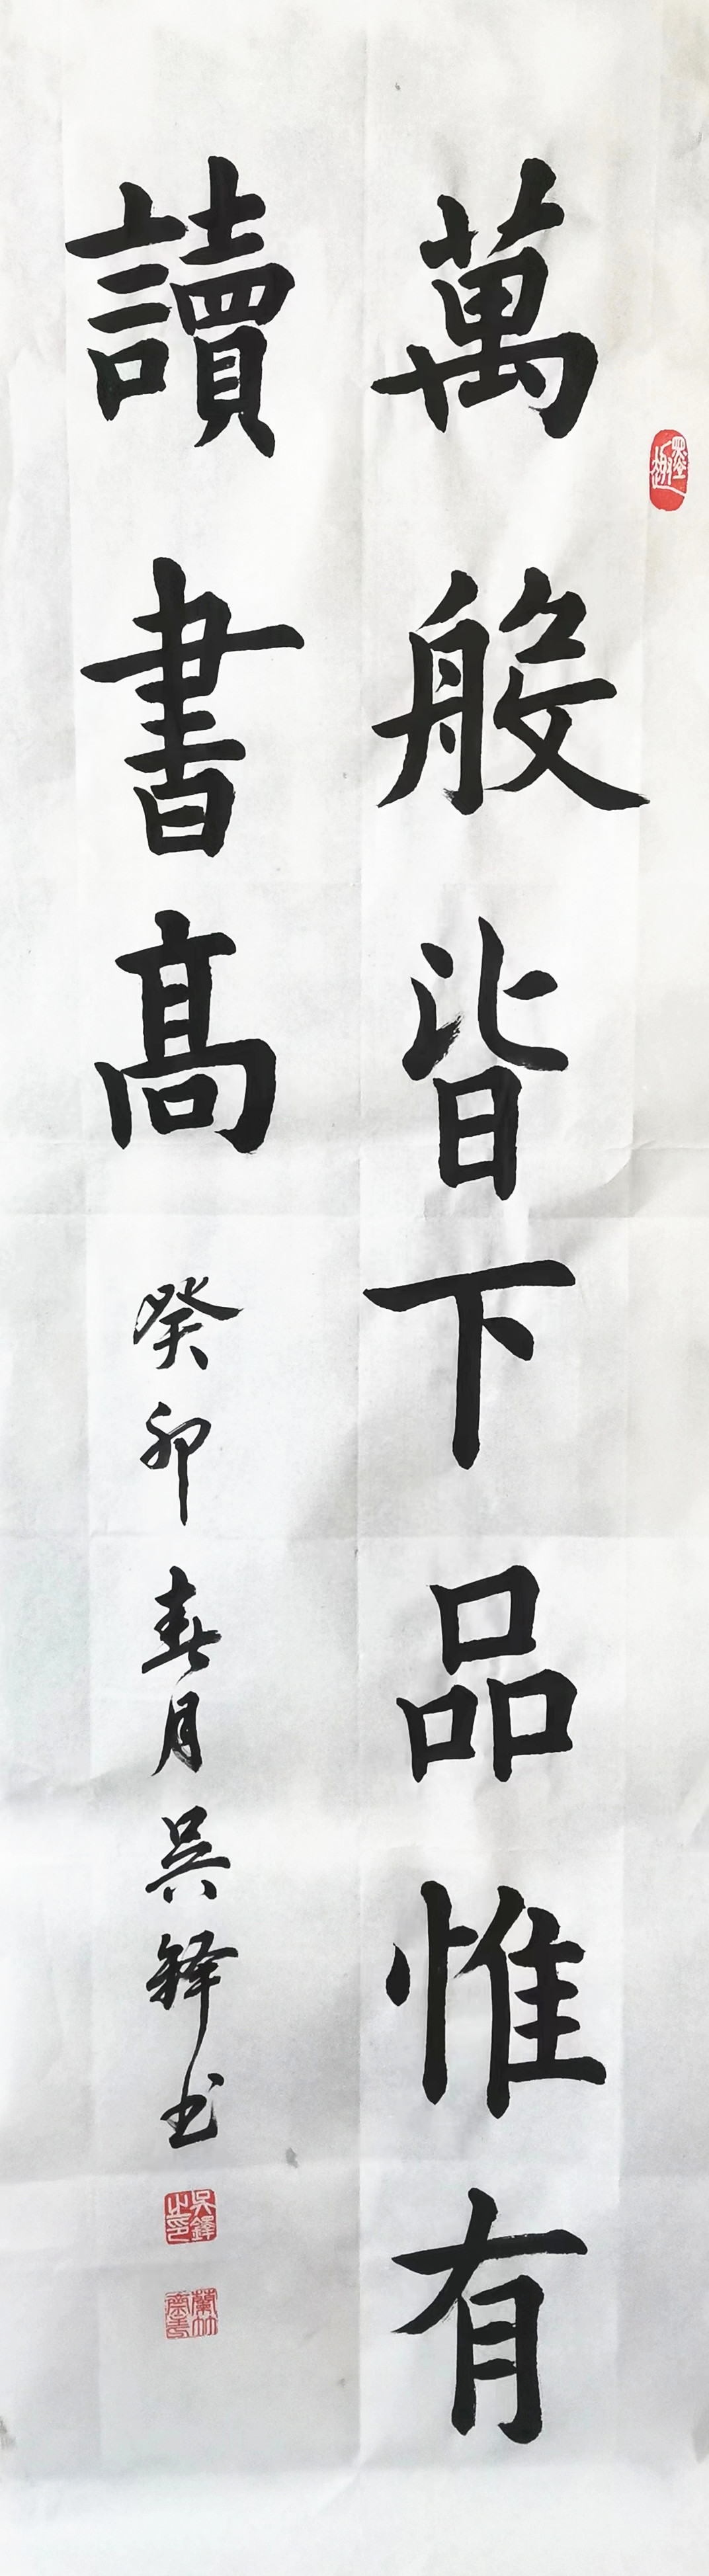 萬般皆下品惟有
讀書高
癸卯春月吳鐸书
墨趣
吳鐸之印